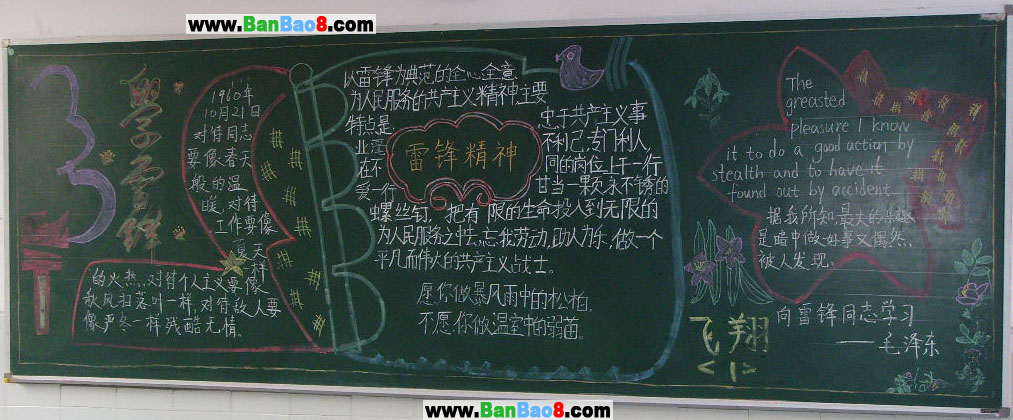 www.BanBao8.com
學雷鋒
1960年
10月21日
对待同志
要像春天
般的温
暖,对待
工作要像
夏天
的火热,对待个人主义要像
秋风扫落叶一样,对待敌人要
像严冬一样残酷无情。
以雷锋为典范的全心全意
为人民服务的共产主义精神主要
特点是
忠于共产主义事
业
不利己,专门利人,
在不
同的岗位上干一行
爱一行
甘当一颗永不锈的
雷锋精神
螺丝钉,把有限的生命投入到无限的
为人民服务之中去,忘我劳动,助人为乐,做一个
平凡而伟大的共产主义战士。
愿你做暴风雨中的松柏,
不愿你做温室中的弱苗。
The
greasted
pleasure I know
it to do a good action by
stealth and to have it
found out by accident
据我所知,最大的乐趣
是暗中做好事又偶然
被人发现。
飞翔
<1>
向雷锋同志学习
——毛泽东
www.BanBao8.com